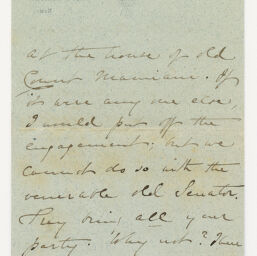 at the house of old
Count Mamiani. If
it were any one else,
I would put off the
engagement; but we
cannot do so with the
venerable old Senator.
They bring all your
party. Why not?